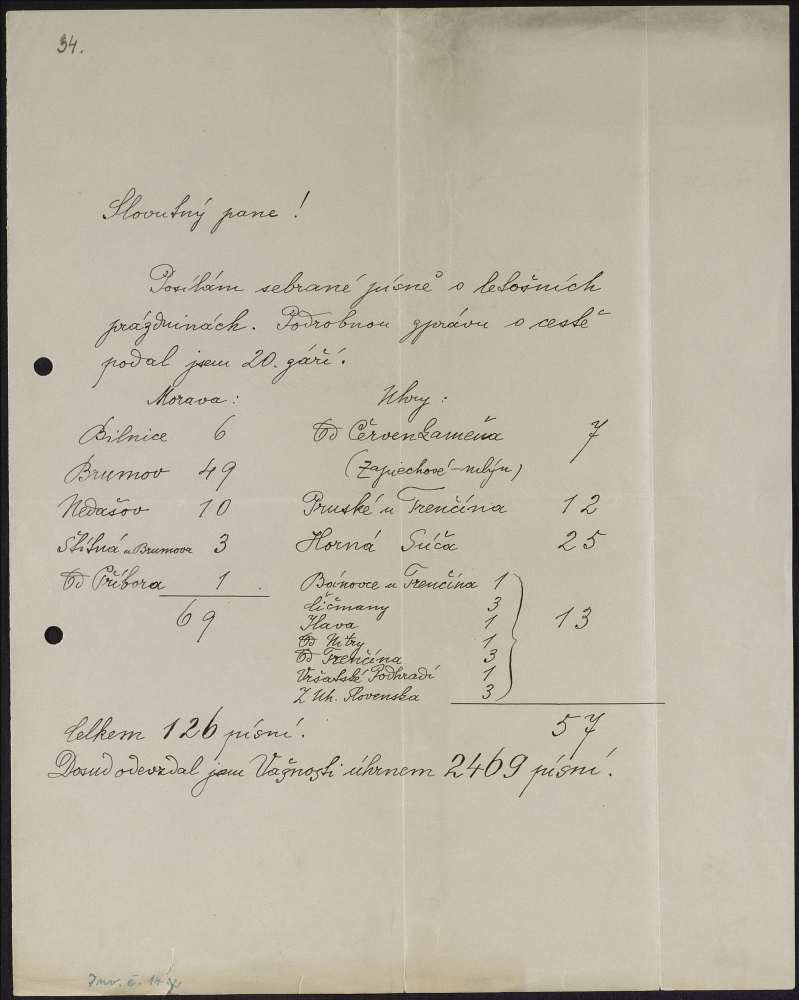 34.
Slovutný pane!
Posílám sebrané písně o letošních
prázdninách. Podrobnou zprávu o cestě
podal jsem 20. září.
Morava: Uhry:
Bilnice 6 Od Červenkameňa 7
Brumov 49 (Zapiechové-mlýn)
Nedašov 10 Pruské u Trenčína 12
Štítná u Brumova 3 Horná Súča 25
Od Příbora 1. Bánovce u Trenčína 1
69 Čičmany 3 13
Ilava 1
Od Nitry 1
Od Trenčína 3
Vršatské Podhradí 1
Z Uh. Slovenska 3
Celkem 126 písní. 57
Dosud odevzdal jsem Vašnosti úhrnem 2469 písní.
Inv. č.